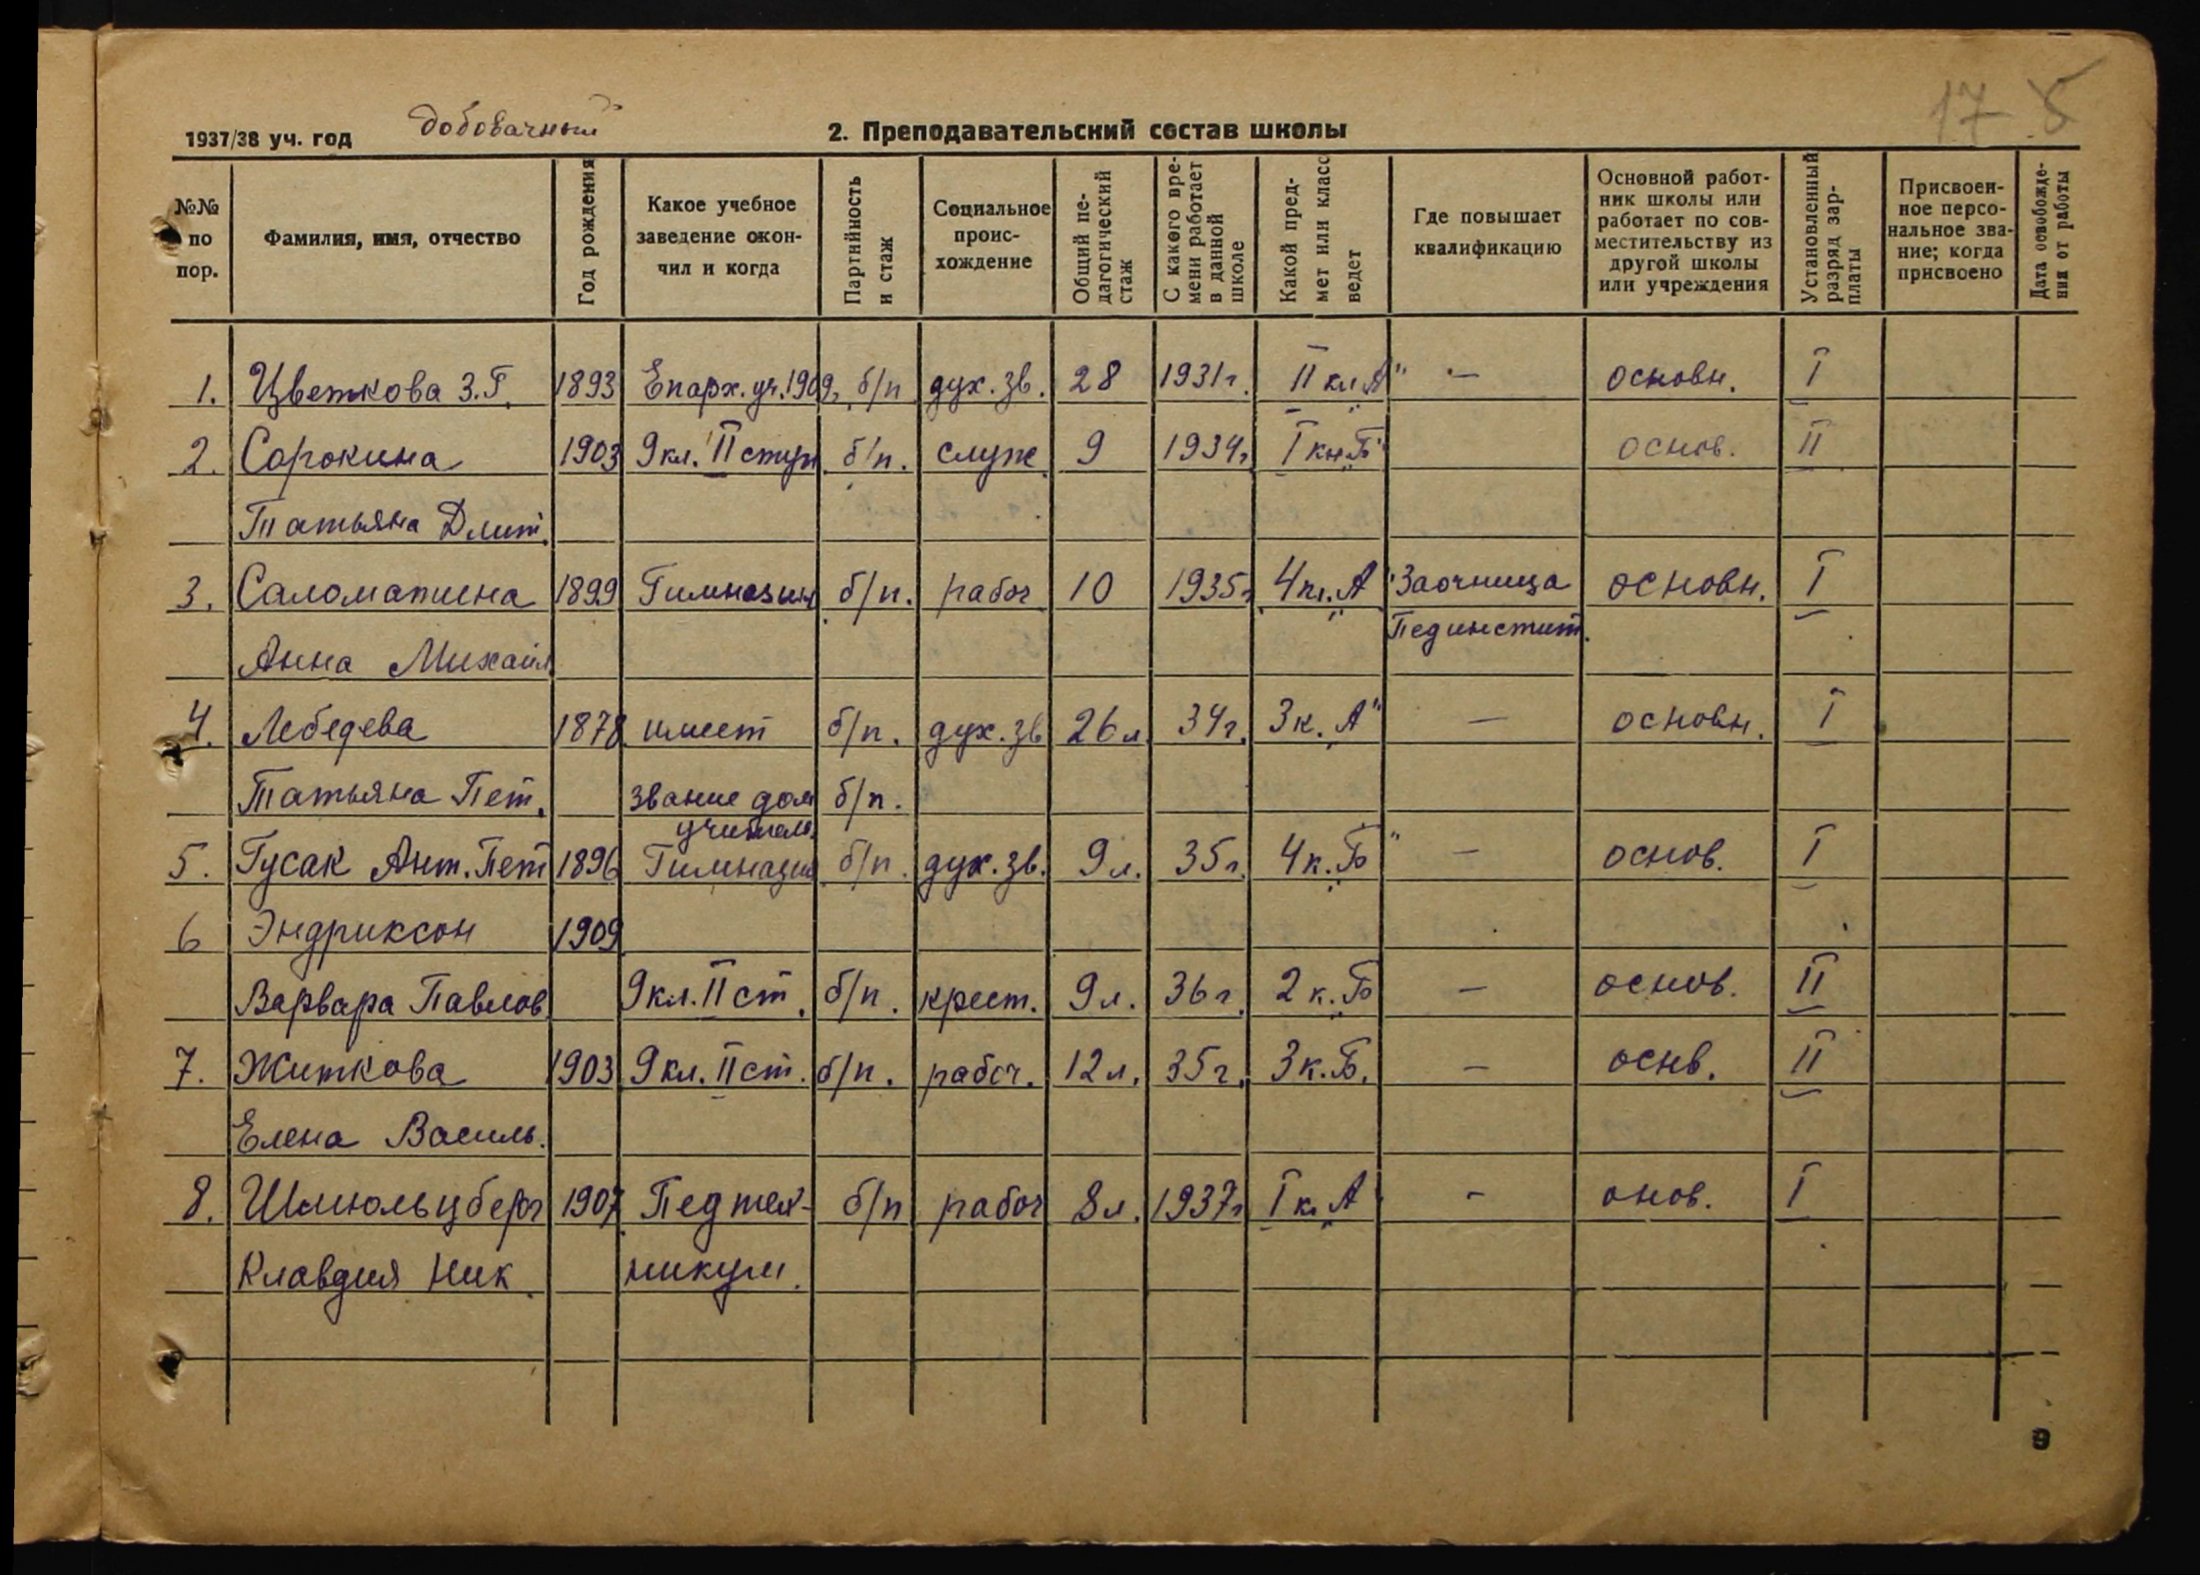 17
1937/38 уч. год добовачный 2. Преподавательский состав школы
№№ по пор. Фамилия, имя, отчество Год рождения Какое учебное заведение окончил и когда Партийность и стаж Социальное происхождение Общий педагогический стаж С какого времени работает в данной школе Какой предмет или класс ведет Где повышает квалификацию Основной работник школы или работает по совместительству из другой школы или учреждения Установленный разряд зарплаты Присвоенное персональное звание; когда присвоено Дата освобождения от работы
1. Цветкова З.Г. 1893 Епарх. уч. 1909г. б/п дух. зв. 28 1931г. II кл. „А" — основн. I
2. Сорокина 1903 9кл. II ступ б/п. служ. 9 1934г. I кл. „Б" основ. II
Татьяна Дмит.
3. Саломатина 1899 Гимназия б/п. рабоч 10 1935г. 4 кл. „А" Заочница основн. I
Пединстит.
Анна Михайл.
4. Лебедева 1878 имеет б/п. дух. зв 26 л. 34г. 3 к. „А" — основн. I
Татьяна Пет. звание дом б/п.
учительн.
5. Гусак Ант. Пет 1896 Гимназия б/п. дух. зв. 9 л. 35г. 4 к. „Б" — основ. I
6 Эндриксон 1909
Варвара Павлов. 9 кл. II ст. б/п. крест. 9 л. 36г. 2 к. „Б — основ. II
7. Житкова 1903 9 кл. II ст. б/п. рабоч. 12 л. 35г. 3 к. Б. — оснв. II
Елена Василь.
8. Шмюльцберг 1907 Пед тех- б/п рабоч 8 л. 1937г I к. „А — онов. I
Клавдия Ник. никум.
9